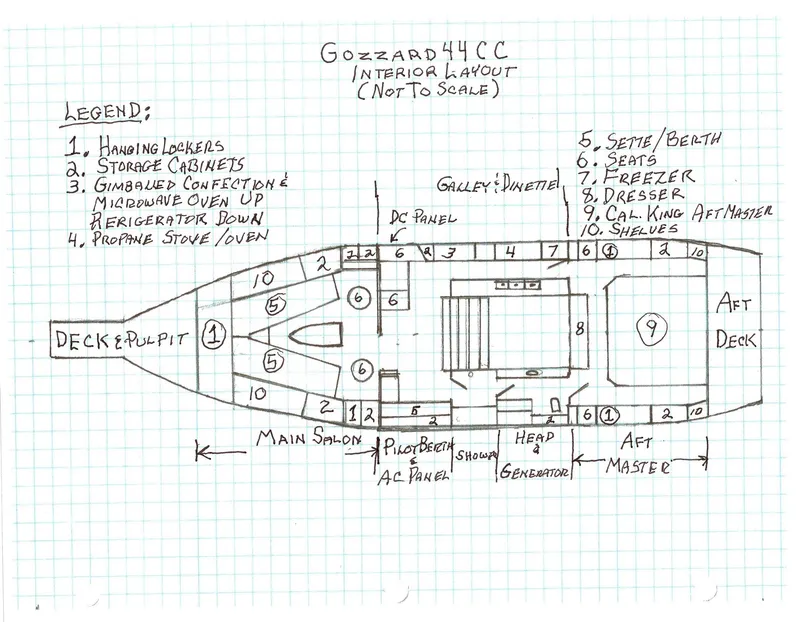 GOZZARD 44 CC
INTERIOR LAYOUT
(NOT TO SCALE)
LEGEND:
1. HANGING LOCKERS
2. STORAGE CABINETS
3. GIMBALED CONFECTION &
MICROWAVE OVEN UP
REFRIGERATOR DOWN
4. PROPANE STOVE/OVEN
5. SETTE/BERTH
6. SEATS
7. FREEZER
8. DRESSER
9. CAL. KING AFT MASTER
10. SHELVES
GALLEY & DINETTE
DC PANEL
2 2 6 2 3 4 7 6 1 2 10
10 2
5 6 6
DECK & PULPIT 1 8 9 AFT
DECK
5 6
10 2 1 2 5 2 2 6 1 2 10
MAIN SALON
PILOT BERTH
&
AC PANEL
SHOWR
HEAD
&
GENERATOR
AFT
MASTER